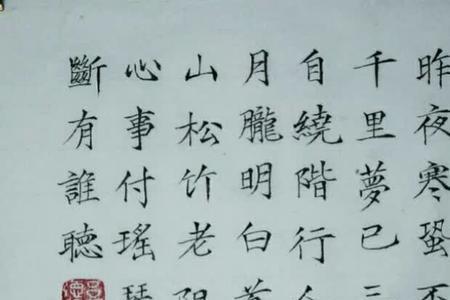 昨夜寒蛩不
千里夢已三
自繞階行人
月朧明白首
山松竹老阻
心事付瑤琴
斷有誰聽